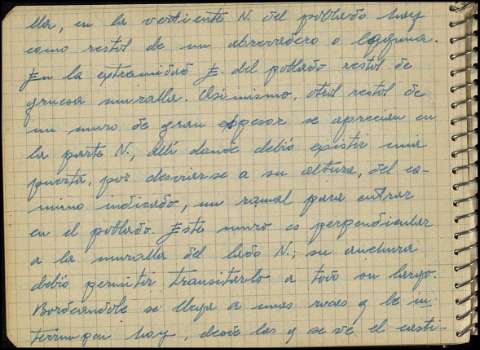 lla, en la vertiente N. del poblado hay
como restos de un abrevadero o laguna.
En la extremidad E. del poblado restos de
gruesa muralla. Asimismo, otros restos de
un muro de gran espesor se aprecian en
la parte N., allí donde debió existir una
puerta, por desviarse a su altura, del ca-
mino indicado, un ramal para entrar
en el poblado. Este muro es perpendicular
a la muralla del lado N.; su anchura
debió permitir transitarlo a todo su largo.
Bordeándole se llega a unas rocas q le in-
terrumpen hoy, desde las q se ve el casti-